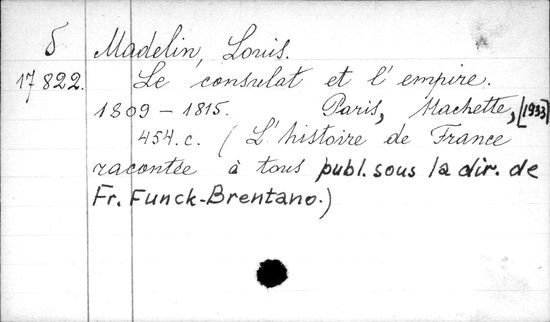 δ Madelin, Louis.
17822. Le consulat et l'empire.
1809 – 1815. Paris, Hachette, [1933]
454.c. (L'histoire de France
racontée à tous publ. sous la dir. de
Fr. Funck-Brentano.)